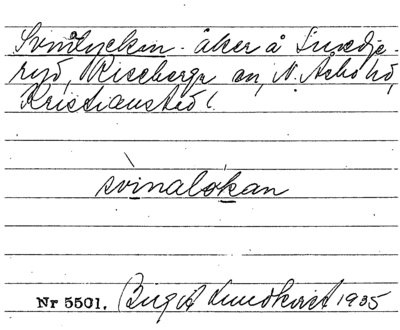 Svinlyckan. åker å Smedje-
ryd, Riseberga sn, N. Åsbo hd,
Kristianstad l.
svinalókan
Nr 5501. Birgit Lundkvist 1935